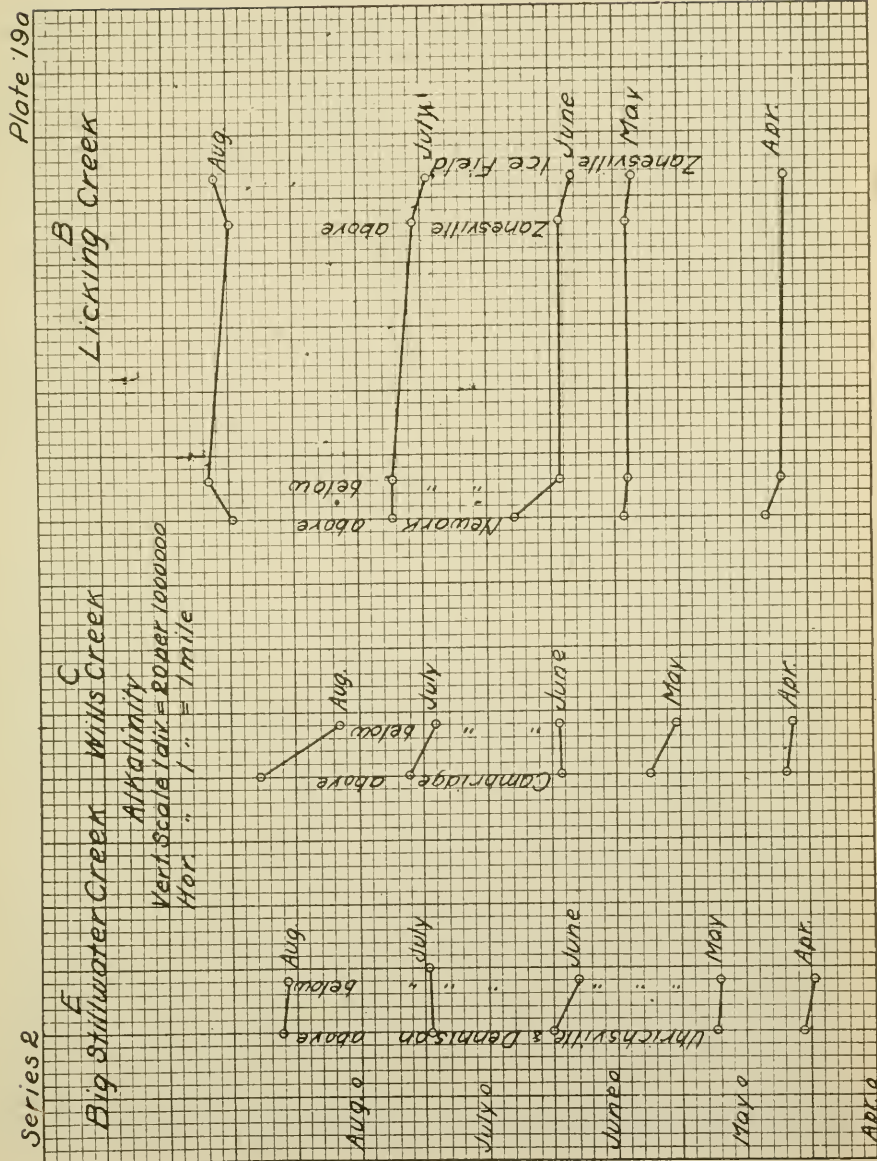 Series 2
Plate 19a
E
Big Stillwater Creek
C
Wills Creek
B
Licking Creek
Alkalinity
Vert. Scale 1 div. = 20 per 1000000
Hor. " 1 " = 1 mile
Aug. 0
July 0
June 0
May 0
Apr. 0
Uhrichsville & Dennison above
" " " " below
Aug.
July
June
May
Apr.
Cambridge above
" " below
Aug.
July
June
May
Apr.
Newark above
" " below
Zanesville above
Zanesville Ice Field
Aug.
July
June
May
Apr.